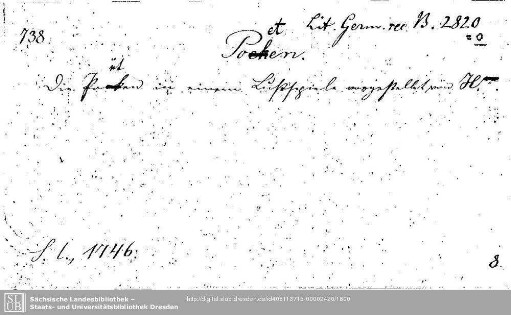 738
Lit. Germ. rec. B. 2820
et
Pochen.
ät
Die Pocken in einem Lustspiele vorgestellet von H.
S. l., 1746.
8.
Sächsische Landesbibliothek –
Staats- und Universitätsbibliothek Dresden